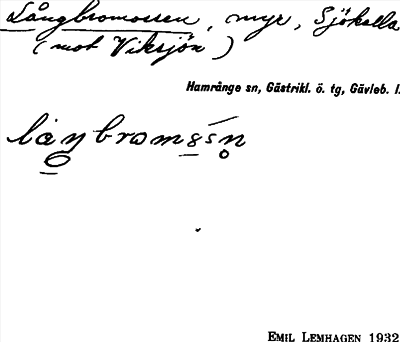 Långbromossen, myr, Sjökalla
(mot Viksjön)
Hamrånge sn, Gästrikl. ö. tg, Gävleb. l.
Emil Lemhagen 1932